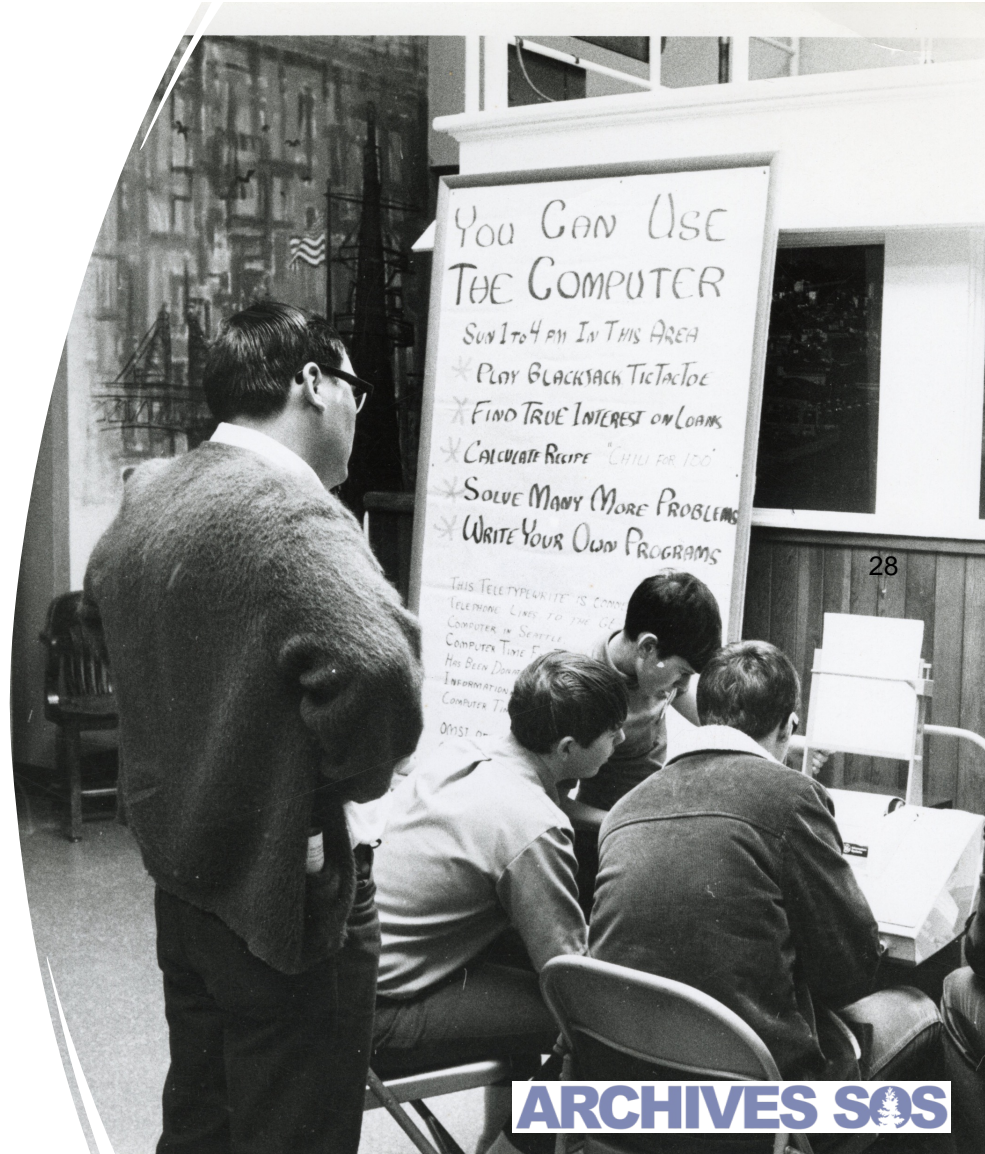 You Can Use
The Computer
Sun 1 to 4 PM In This Area
* Play Blackjack TicTacToe
* Find True Interest on Loans
* Calculate Recipe "Chili for 100"
* Solve Many More Problems
* Write Your Own Programs
This Teletypewrite is
Telephone Lines to the GE
Computer in Seattle
Computer Time
Has Been
Information
Computer
OMSI
28
ARCHIVES SOS